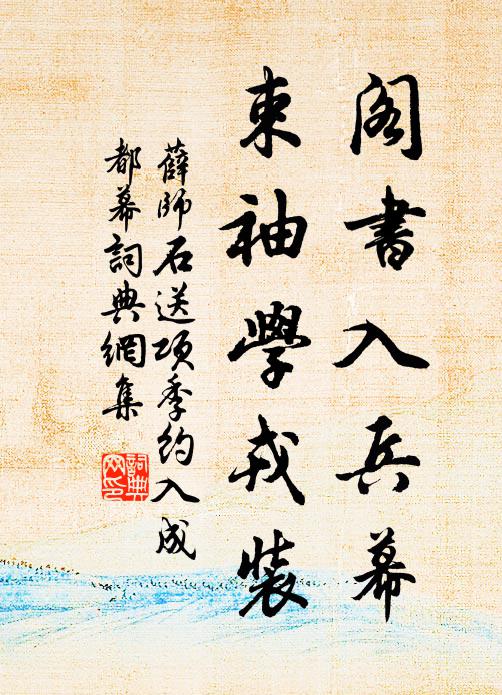 阁書入兵幕
束袖學戎裝
薛師石送项季約入成
都幕詞典網集
詞典網印